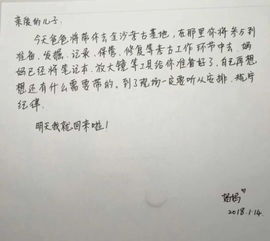 亲爱的儿子：
今天爸爸将带你去金沙考古基地，在那里你将参与到
准备、发掘、记录、保管、修复等考古工作环节中去，妈
妈已经将笔记本、放大镜等工具给你准备好了，自己再想
想还有什么需要带的。到了现场一定要听从安排，遵守
纪律。
明天我就回来啦！
妈妈
2018.1.14